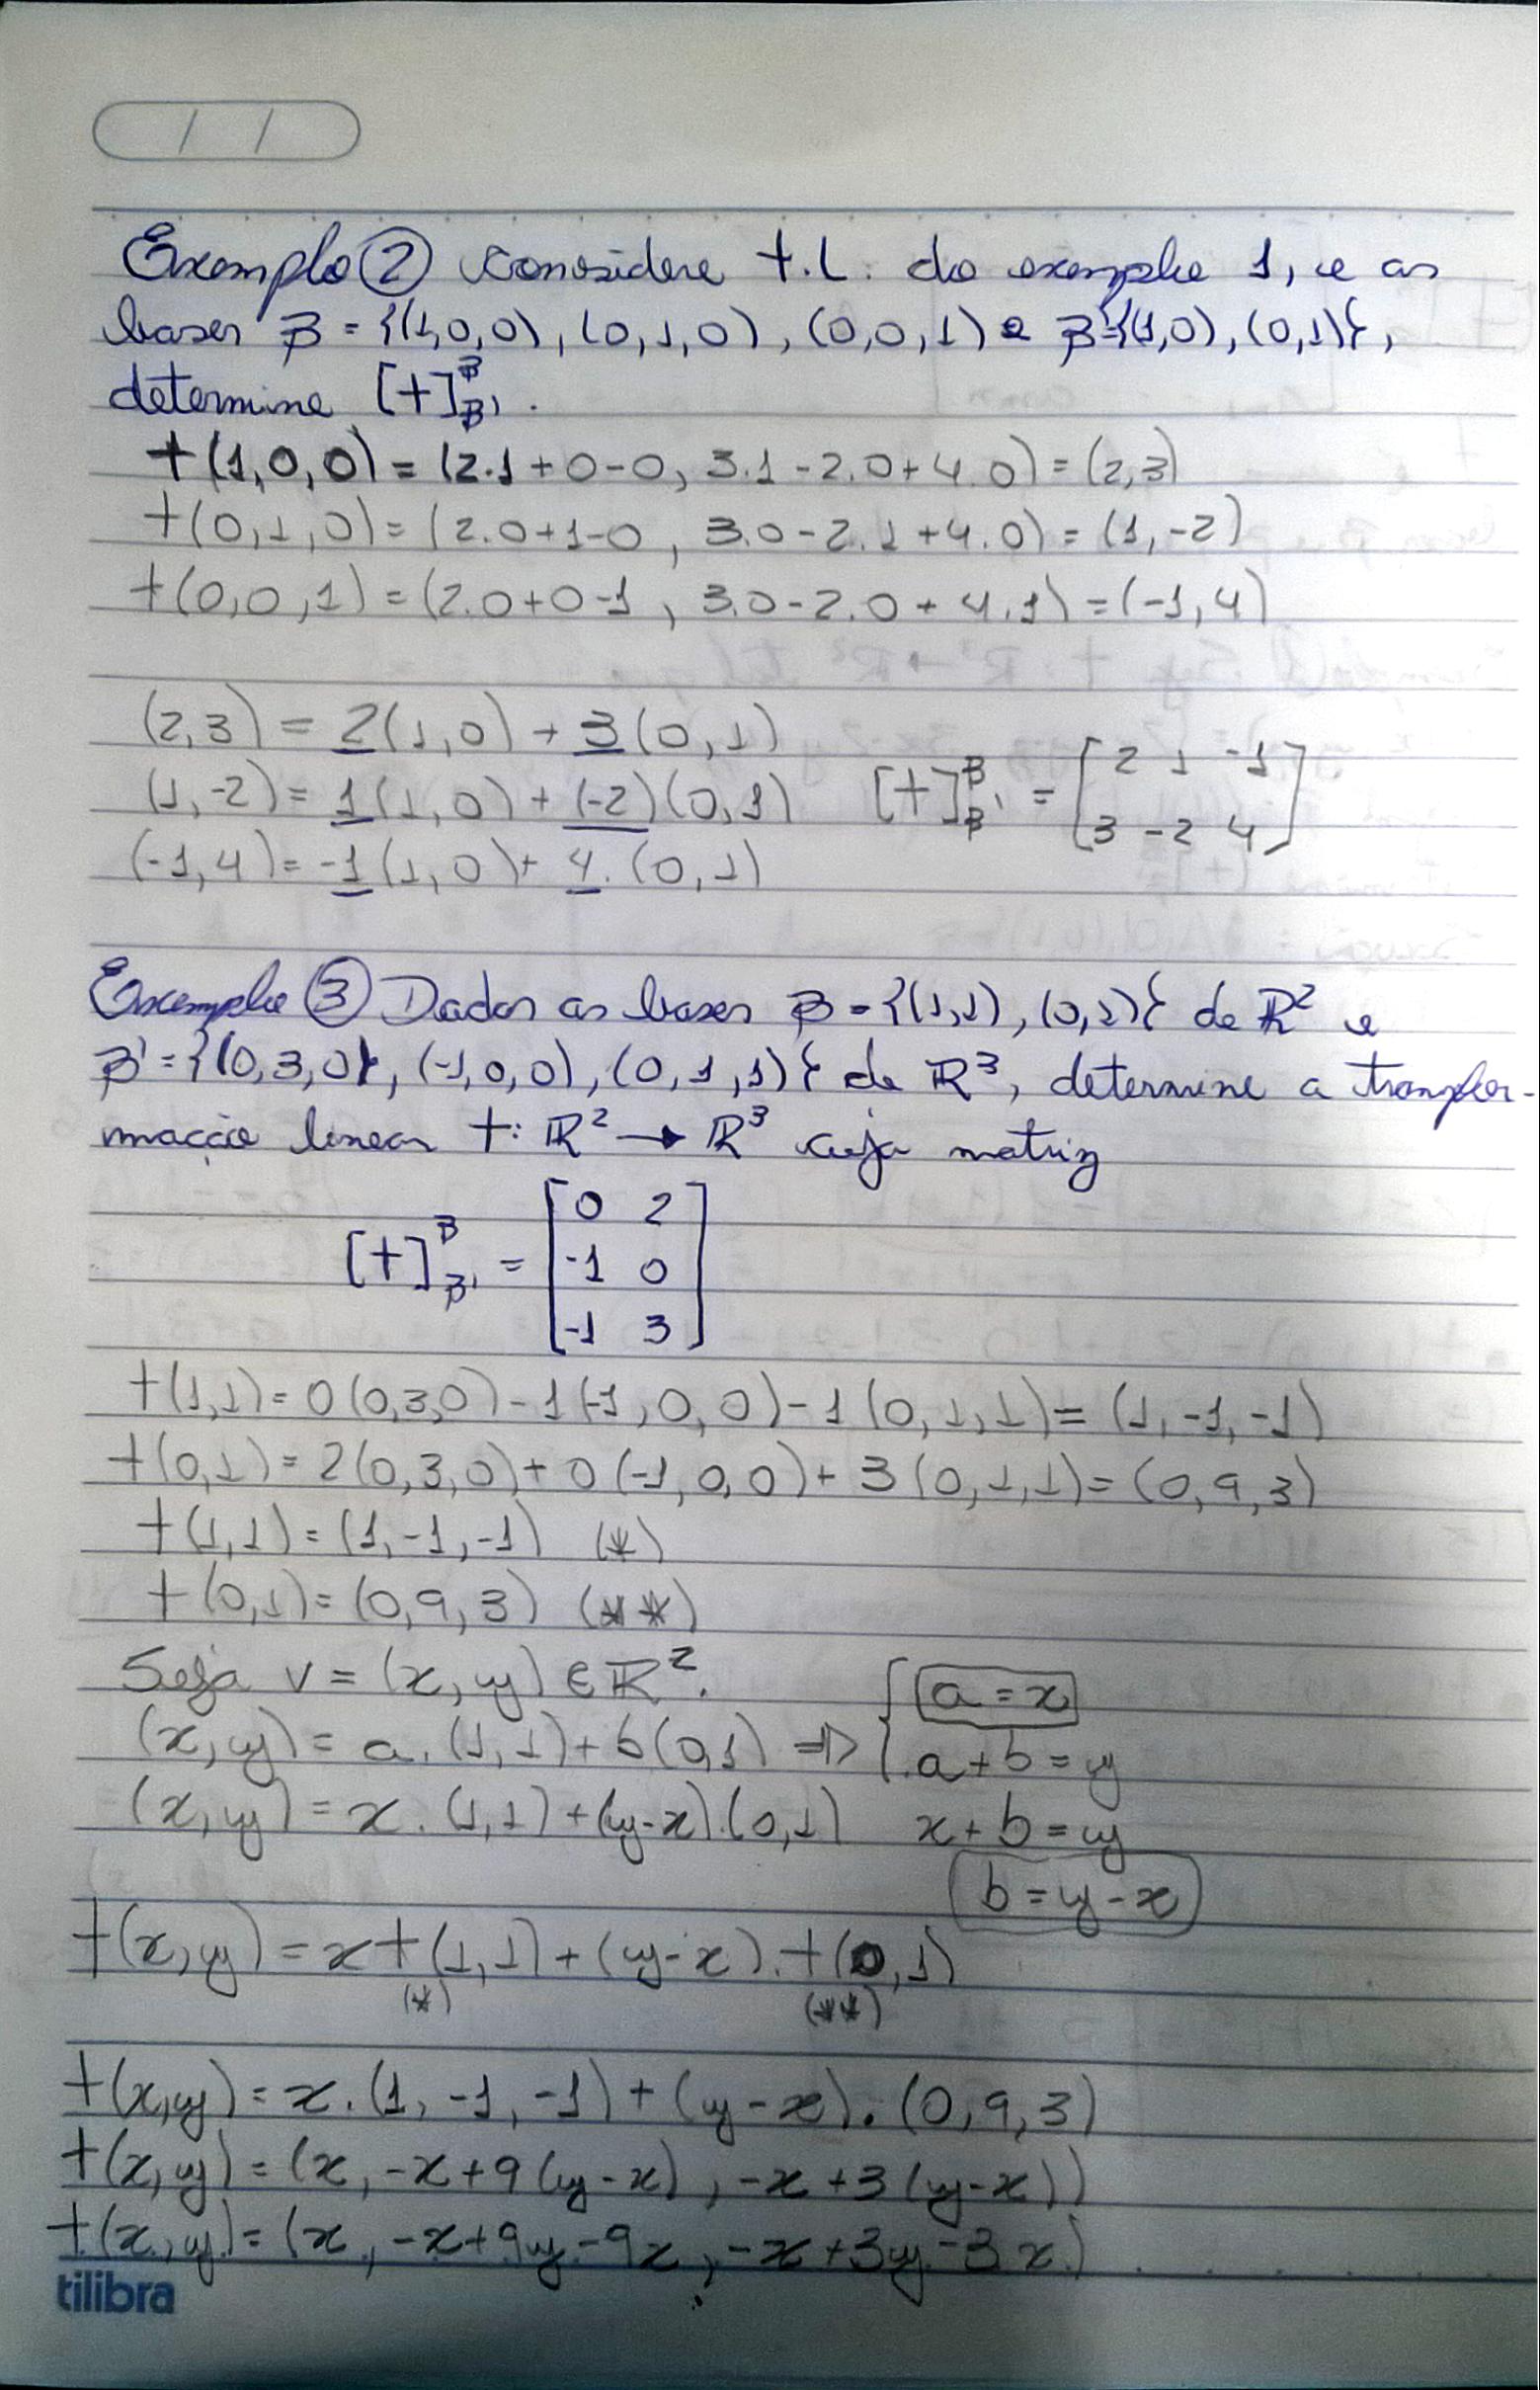 / /
Exemplo ② considere t.L. do exemplo 1, e as
bases β = {(1,0,0), (0,1,0), (0,0,1) e β'={(1,0), (0,1)},
determine [t]^β_β'.
t(1,0,0) = (2.1+0-0, 3.1-2.0+4.0) = (2,3)
t(0,1,0) = (2.0+1-0, 3.0-2.1+4.0) = (1,-2)
t(0,0,1) = (2.0+0-1, 3.0-2.0+4.1) = (-1,4)
(2,3) = 2(1,0) + 3(0,1)
(1,-2) = 1(1,0) + (-2)(0,1) [t]^β_β' = [2 1 -1
3 -2 4]
(-1,4) = -1(1,0) + 4.(0,1)
Exemplo ③ Dadas as bases β = {(1,1), (0,1)} de ℝ² e
β' = {(0,3,0), (-1,0,0), (0,1,1)} de ℝ³, determine a transfor-
mação linear t: ℝ² → ℝ³ cuja matriz
[t]^β_β' = [0 2
-1 0
-1 3]
t(1,1) = 0(0,3,0) - 1(-1,0,0) - 1(0,1,1) = (1,-1,-1)
t(0,1) = 2(0,3,0) + 0(-1,0,0) + 3(0,1,1) = (0,9,3)
t(1,1) = (1,-1,-1) (*)
t(0,1) = (0,9,3) (**)
Seja v = (x,y) ∈ ℝ².
(x,y) = a.(1,1) + b(0,1) => { a = x
a + b = y
(x,y) = x.(1,1) + (y-x).(0,1) x + b = y
b = y - x
t(x,y) = x t(1,1) + (y-x).t(0,1)
(*) (**)
t(x,y) = x.(1,-1,-1) + (y-x).(0,9,3)
t(x,y) = (x, -x+9(y-x), -x+3(y-x))
t(x,y) = (x, -x+9y-9x, -x+3y-3x)
tilibra